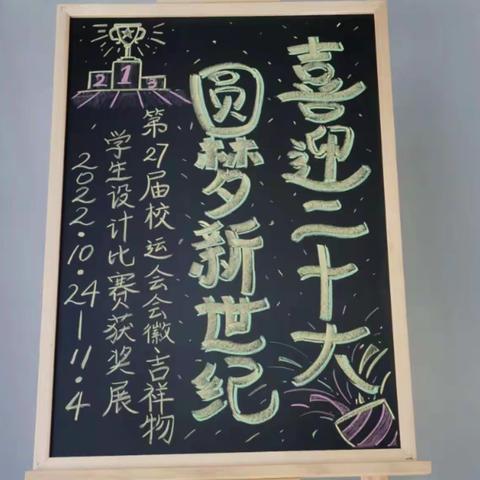 喜迎二十大
圆梦新世纪
第27届校运会会徽·吉祥物
学生设计比赛获奖展
2022.10.24-11.4
1
2
3